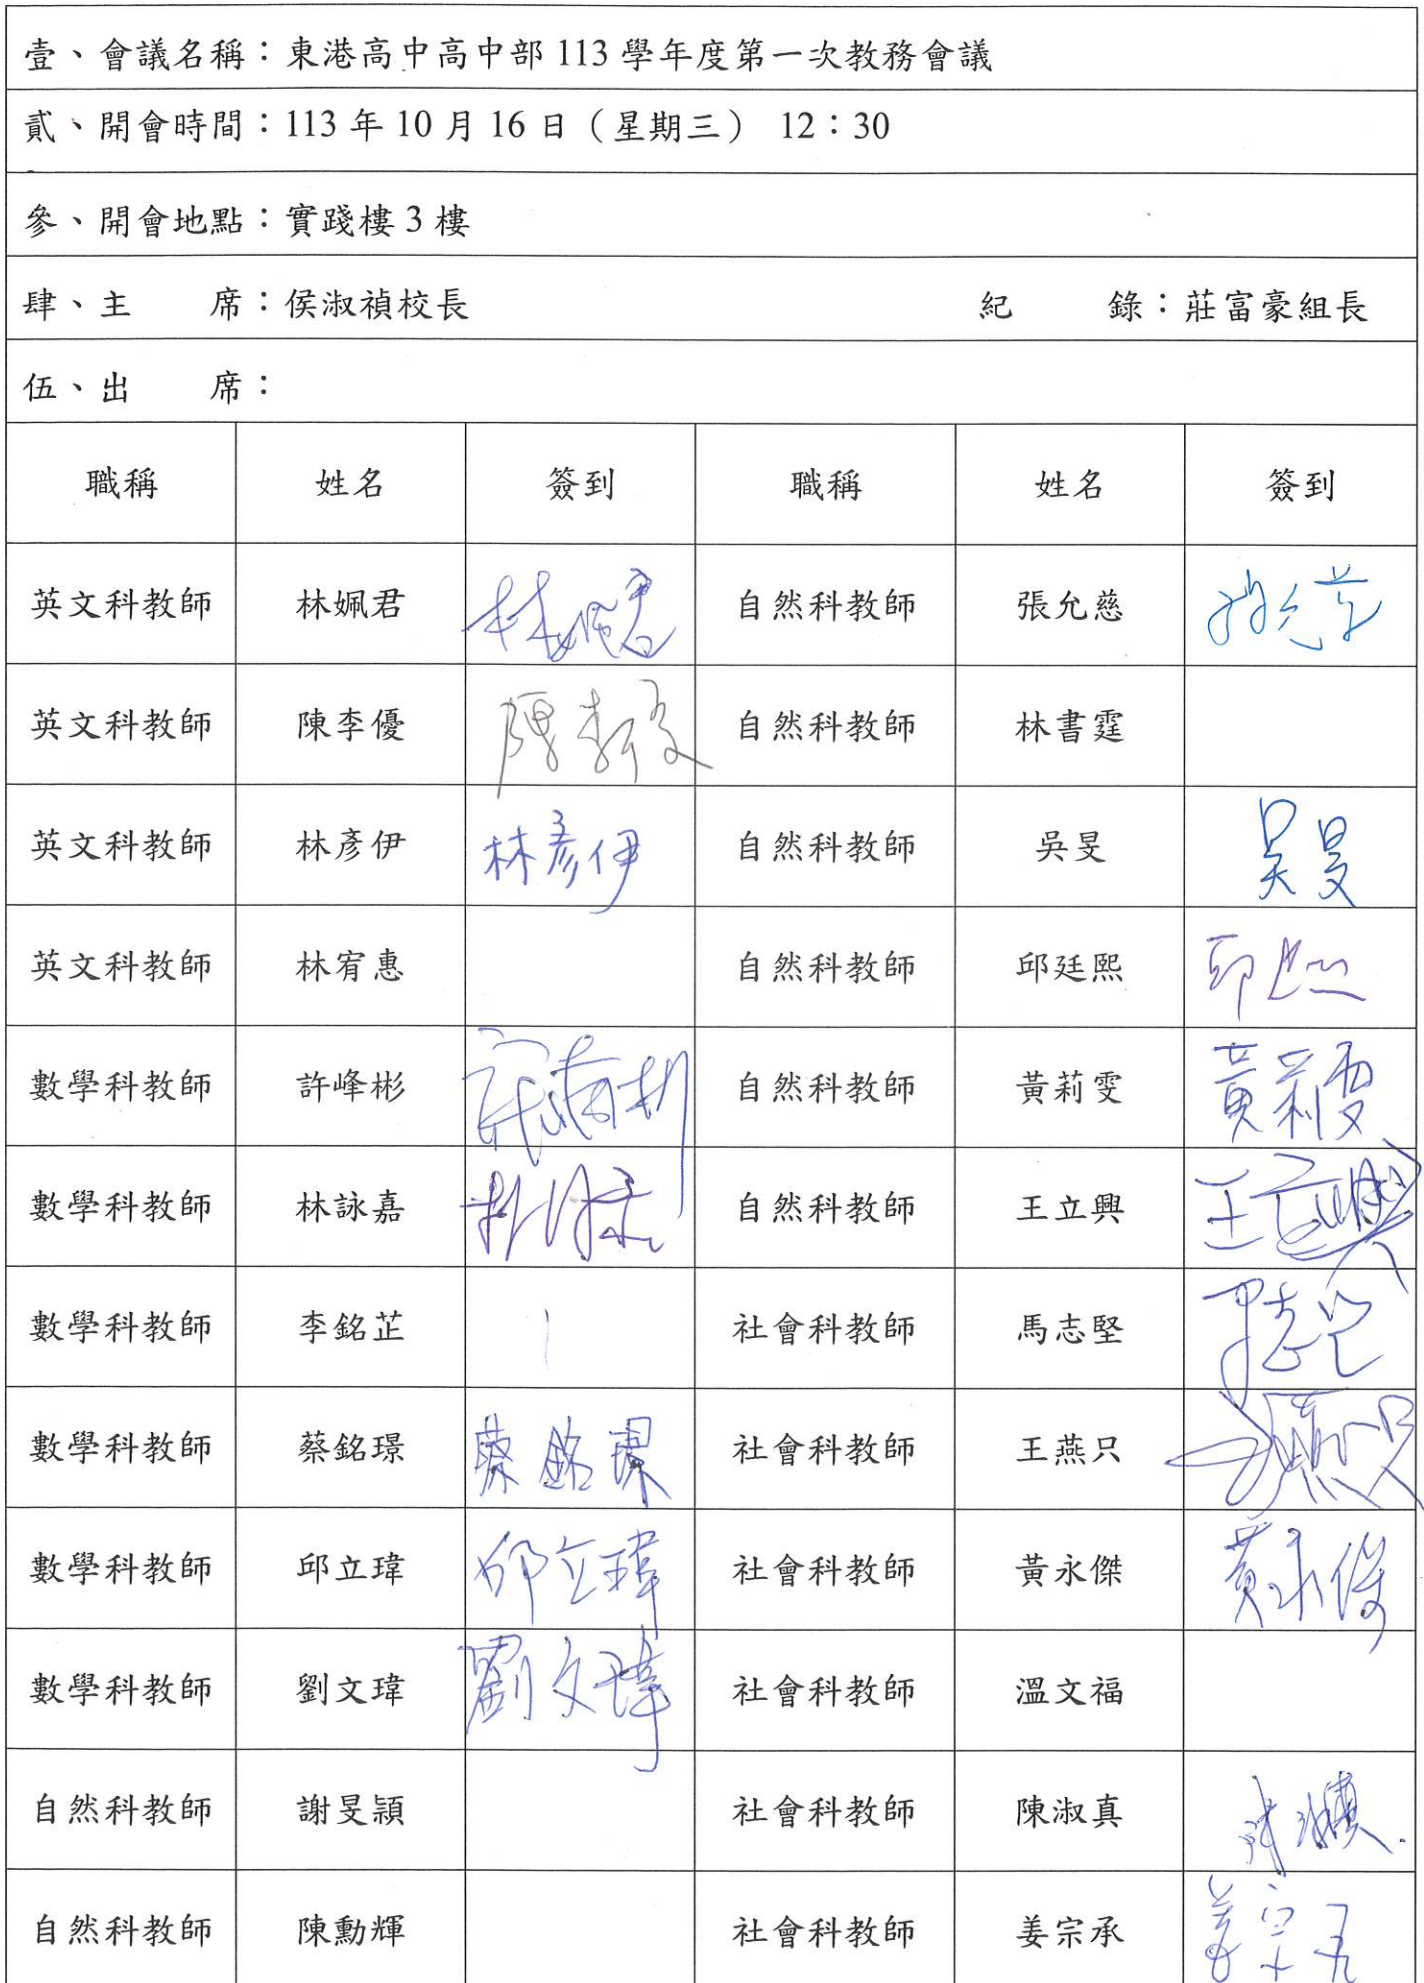 壹、會議名稱：東港高中高中部 113 學年度第一次教務會議
貳、開會時間：113 年 10 月 16 日（星期三） 12：30
參、開會地點：實踐樓 3 樓
肆、主　　席：侯淑禎校長　　紀　　錄：莊富豪組長
伍、出　　席：
職稱 姓名 簽到 職稱 姓名 簽到
英文科教師 林姵君 林姵君 自然科教師 張允慈 張允慈
英文科教師 陳李優 陳李優 自然科教師 林書霆
英文科教師 林彥伊 林彥伊 自然科教師 吳旻 吳旻
英文科教師 林宥惠 自然科教師 邱廷熙 邱廷熙
數學科教師 許峰彬 許峰彬 自然科教師 黃莉雯 黃莉雯
數學科教師 林詠嘉 林詠嘉 自然科教師 王立興 王立興
數學科教師 李銘芷 社會科教師 馬志堅 馬志堅
數學科教師 蔡銘璟 蔡銘璟 社會科教師 王燕只 王燕只
數學科教師 邱立瑋 邱立瑋 社會科教師 黃永傑 黃永傑
數學科教師 劉文瑋 劉文瑋 社會科教師 溫文福
自然科教師 謝旻穎 社會科教師 陳淑真 陳淑真
自然科教師 陳勳輝 社會科教師 姜宗承 姜宗承